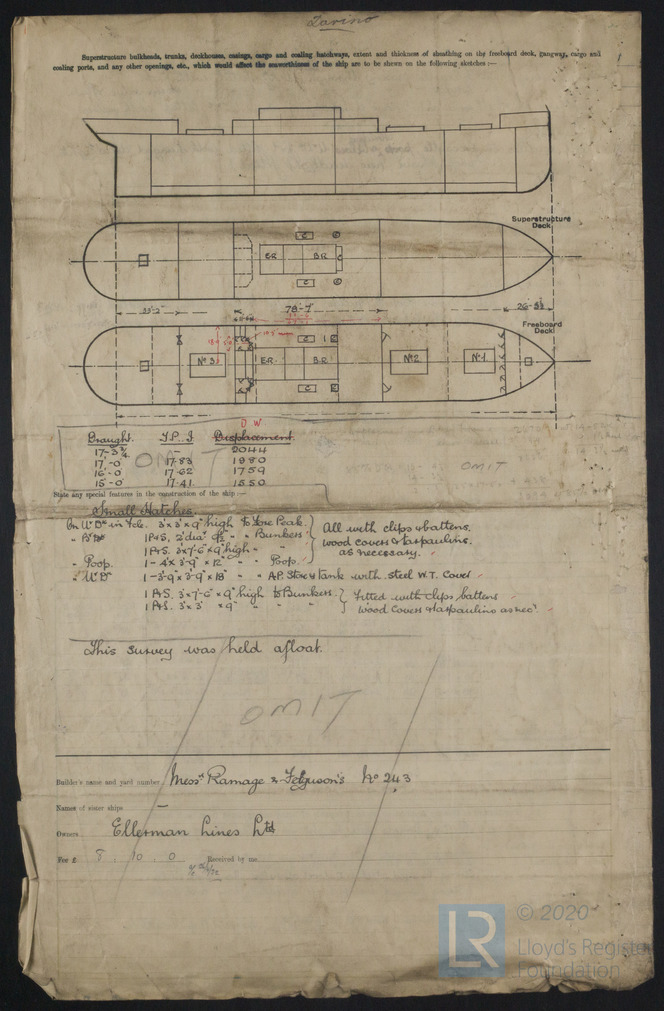 Superstructure bulkheads, trunks, deckhouses, casings, cargo and coaling hatchways, extent and thickness of sheathing on the freeboard deck, gangway, cargo and
coaling ports, and any other openings, etc., which would affect the seaworthiness of the ship are to be shewn on the following sketches :—
Superstructure
Deck.
E.R. B.R.
C
C
78'-7"
Freeboard
Deck
No 3 E.R. B.R. No 2 No 1
D W
Draught. T.P.I. Displacement.
17-3¾ – 2044
17-0 17·83 1980
16-0 17·62 1759
15-0 17·41 1550
OMIT
OMIT
State any special features in the construction of the ship :—
Small Hatches.
3'x3'x9" high to Fore Peak.
All with clips & battens.
wood covers & tarpaulins.
as necessary.
1 P&S. 3'x7'-6"x9" high
" Poop. 1-4'x3'-9"x12" " " Poop.
1-3'-9"x3'-9"x18" " " A.P. Store & tank with steel W.T. Cover
1 P&S. 3'x7'-6"x9" high to Bunkers. Fitted with clips battens
1 P&S. 3'x3' x9" " " " wood covers & tarpaulins as nec.
This survey was held afloat.
OMIT
Builder's name and yard number Messrs Ramage & Ferguson's No 243
Names of sister ships –
Owners Ellerman Lines Ltd
Fee £ 8 . 10 . 0 Received by me
LR
© 2020
Lloyd's Register
Foundation